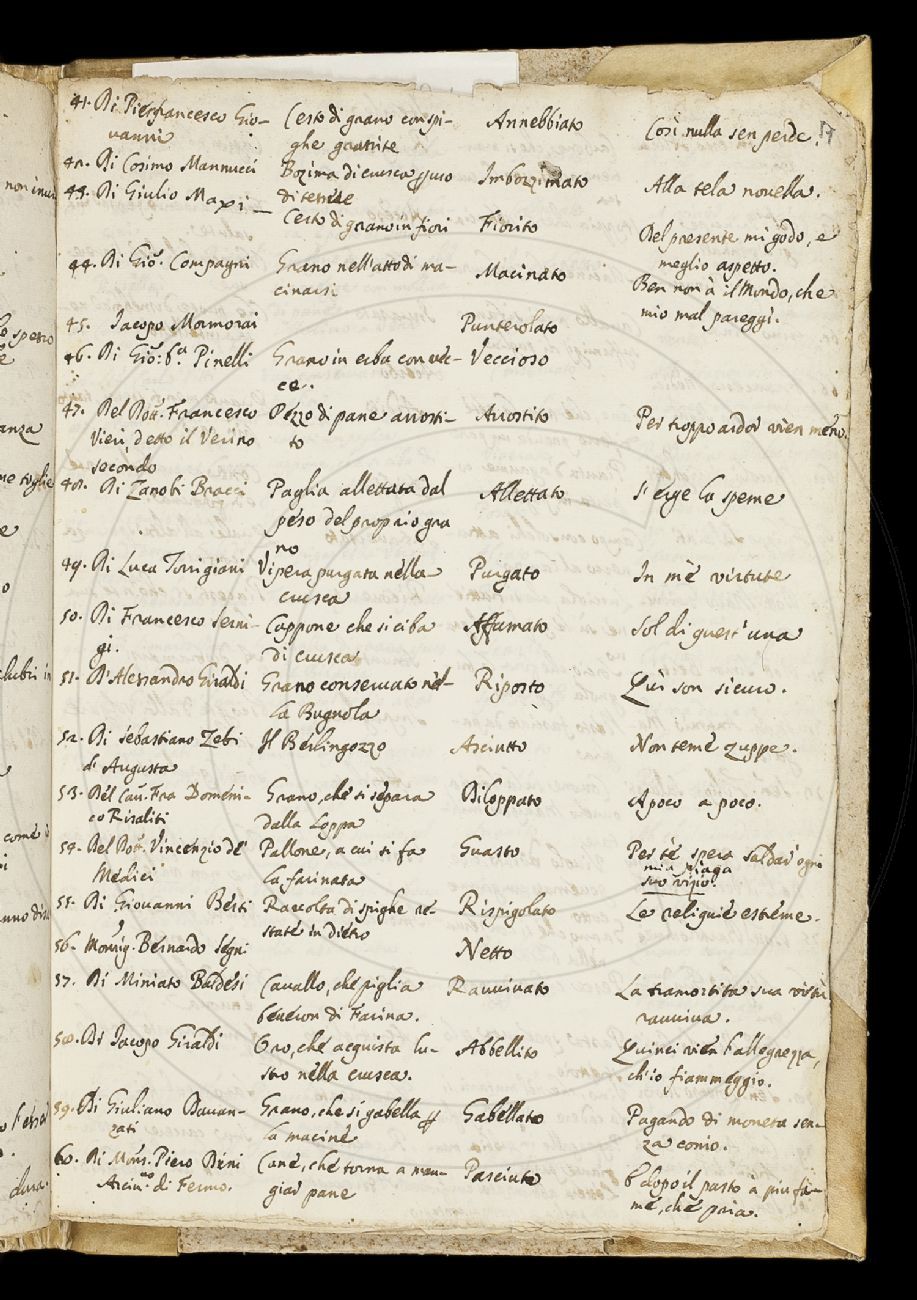 17
41. Di Pierfrancesco Gio- Cesto di grano con spi- Annebbiato Così nulla sen perde.
vanni ghe granite
42. Di Cosimo Mannucci Bozima di crusca uso Imbozzimato Alla tela novella.
43. Di Giulio Mazi — di tessere
Cesto di grano in fiori Fiorito Del presente mi godo, e
meglio aspetto.
44. Di Gio: Compagni Grano nell'atto di ma- Macinato Ben non à il Mondo, che
cinarsi mio mal pareggi.
45. Iacopo Mormorai Punterolato
46. Di Gio: Ba. Pinelli Grano in erba con véc- Veccioso
ce.
47. Del Dott. Francesco Pezzo di pane arrosti- Arrostito Per troppo ardor vien meno.
Vieri detto il Verino to
secondo
48. Di Zanobi Bracci Paglia allettata dal Allettato S'erge la speme
peso del proprio gra
no
49. Di Luca Torrigiani Vipera purgata nella Purgato In mè virtute
crusca
50. Di Francesco Serni- Cappone che si ciba Affamato Sol di quest' una
gi. di crusca
51. D'Alessandro Giraldi Grano conservato nel- Riposto Qui son sicuro.
la Bugnola
52. Di Sebastiano Zebi Il Berlingozzo Asciutto Non teme zuppe.
d' Augusta
53. Del Cav. Fra Domeni- Grano, che si separa Diloppato Apoco a poco.
co Risaliti dalla Loppa
54. Del Dott. Vincenzio de' Pallone, a cui si fa Guasto Per tè spera saldar ogni
Medici la farinata mia piaga
suo vizio.
55. Di Giovanni Berti Raccolta di spighe re- Rispigolato Le reliquie estreme.
state in dietro
56. Monsig. Bernardo Segni Netto
57. Di Miniato Baldesi Cavallo, che piglia Ravvivato La tramortita sua virtù
beveron di Farina. ravviva.
58. Di Iacopo Giraldi Oro, che acquista lu- Abbellito Quinci vien l'allegrezza,
stro nella crusca. ch'io fiammeggio.
59. Di Giuliano Davan- Grano, che si gabella Gabellato Pagando di moneta sen-
zati la macine za conio.
60. Di Mons. Piero Dini Cane, che torna a man- Pasciuto E dopo il pasto à piu fa-
Arciv.o di Fermo. giar pane me, che pria.